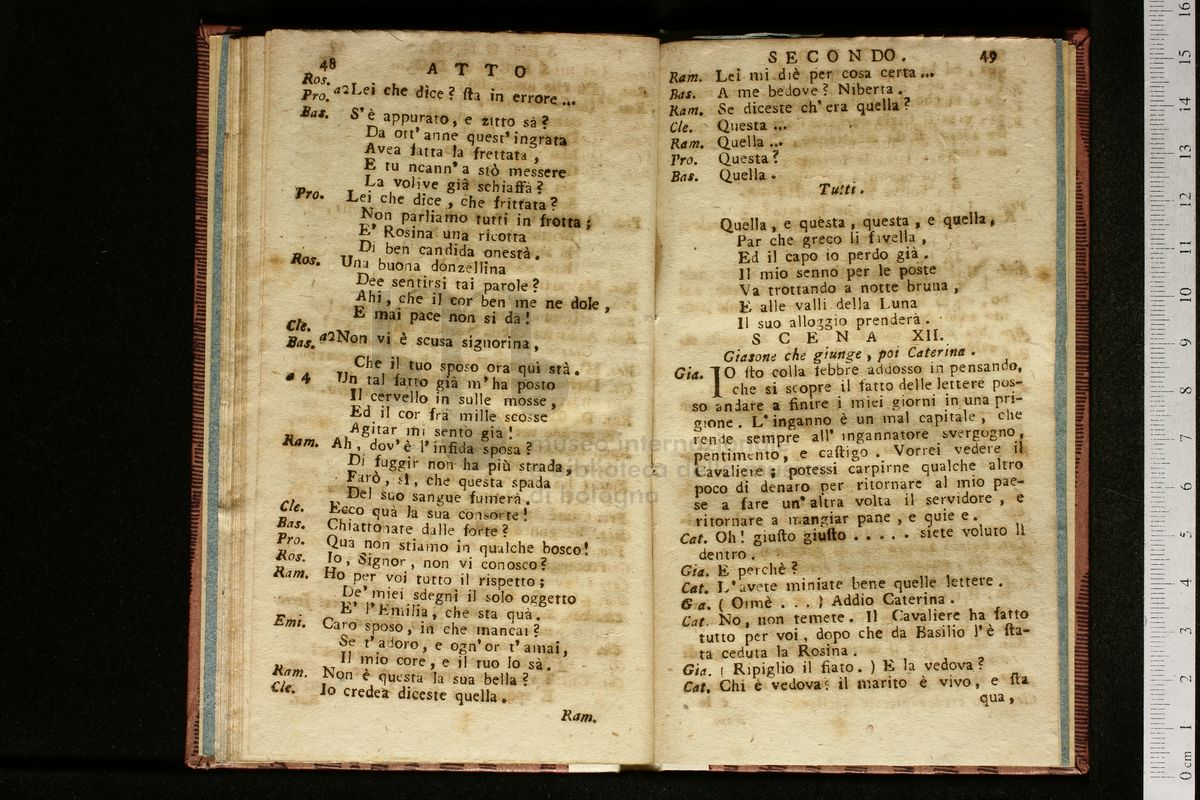 48
ATTO
Ros.
Pro. a2 Lei che dice? sta in errore...
Bas. S'è appurato, e zitto sà?
Da ott' anne quest' ingrata
Avea fatta la frettata,
E tu ncann' a stò messere
La volive già schiaffà?
Pro. Lei che dice, che frittata?
Non parliamo tutti in frotta;
E' Rosina una ricotta
Di ben candida onestà.
Ros. Una buona donzellina
Dee sentirsi tai parole?
Ahi, che il cor ben me ne dole,
E mai pace non si da!
Cle.
Bas. a2 Non vi è scusa signorina,
Che il tuo sposo ora quì stà.
a 4 Un tal fatto già m'ha posto
Il cervello in sulle mosse,
Ed il cor fra mille scosse
Agitar mi sento già!
Ram. Ah, dov'è l'infida sposa?
Di fuggir non ha più strada,
Farò, sì, che questa spada
Del suo sangue fumerà.
Cle. Ecco quà la sua consorte!
Bas. Chiattonate dalle forte?
Pro. Qua non stiamo in qualche bosco!
Ros. Io, Signor, non vi conosco?
Ram. Ho per voi tutto il rispetto;
De' miei sdegni il solo oggetto
E' l'Emilia, che sta quà.
Emi. Caro sposo, in che mancai?
Se t'adoro, e ogn'or t'amai,
Il mio core, e il tuo lo sà.
Ram. Non è questa la sua bella?
Cle. Io credea diceste quella.
Ram.
SECONDO.
49
Ram. Lei mi diè per cosa certa...
Bas. A me bedove? Niberta.
Ram. Se diceste ch'era quella?
Cle. Questa...
Ram. Quella...
Pro. Questa?
Bas. Quella.
Tutti.
Quella, e questa, questa, e quella,
Par che greco li favella,
Ed il capo io perdo già.
Il mio senno per le poste
Va trottando a notte bruna,
E alle valli della Luna
Il suo alloggio prenderà.
SCENA XII.
Giasone che giunge, poi Caterina.
Gia. IO sto colla febbre addosso in pensando,
che si scopre il fatto delle lettere pos-
so andare a finire i miei giorni in una pri-
gione. L'inganno è un mal capitale, che
rende sempre all' ingannatore svergogno,
pentimento, e castigo. Vorrei vedere il
Cavaliere; potessi carpirne qualche altro
poco di denaro per ritornare al mio pae-
se a fare un' altra volta il servidore, e
ritornare a mangiar pane, e quie e.
Cat. Oh! giusto giusto ..... siete voluto lì
dentro.
Gia. E perchè?
Cat. L'avete miniate bene quelle lettere.
Gia. (Oimè...) Addio Caterina.
Cat. No, non temete. Il Cavaliere ha fatto
tutto per voi, dopo che da Basilio l'è sta-
ta ceduta la Rosina.
Gia. (Ripiglio il fiato.) E la vedova?
Cat. Chi è vedova? il marito è vivo, e sta
qua,
museo internazionale
biblioteca della musica
di bologna
16
15
14
13
12
11
10
9
8
7
6
5
4
3
2
1
0 cm